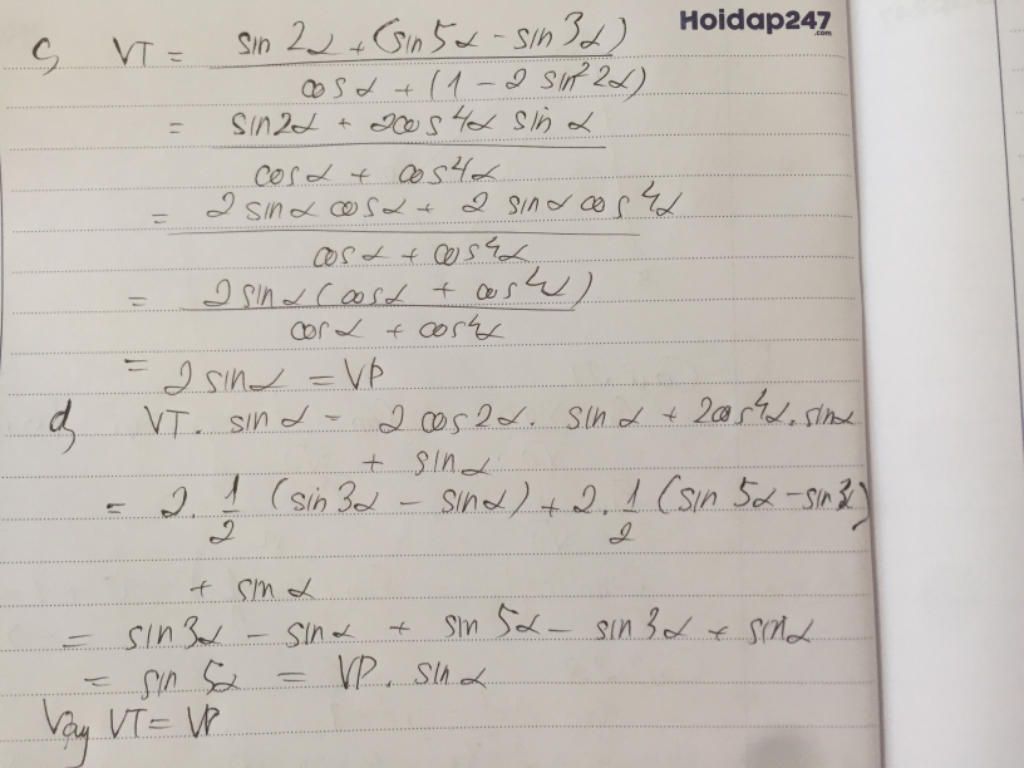 Hoidap247
.com
c, VT = sin 2α + (sin 5α - sin 3α)
cos α + (1 - 2 sin² 2α)
= sin2α + 2cos 4α sin α
cosα + cos4α
= 2 sinα cosα + 2 sinα cos 4α
cosα + cos4α
= 2 sinα (cosα + cos4α)
cosα + cos4α
= 2 sinα = VP
d, VT. sin α = 2 cos2α. sin α + 2cos4α. sinα
+ sinα
= 2. 1/2 (sin 3α - sinα) + 2. 1/2 (sin 5α - sin 3α)
+ sin α
= sin3α - sinα + sin 5α - sin 3α + sinα
= sin 5α = VP. sinα
Vậy VT = VP